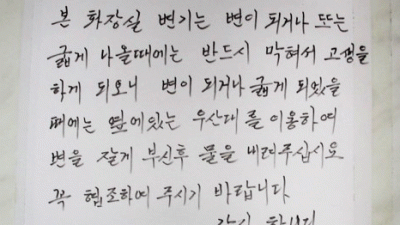 본 화장실 변기는 변이 되거나 또는
굵게 나올때에는 반드시 막혀서 고생을
하게 되오니 변이 되거나 굵게 되었을
때에는 옆에있는 우산대를 이용하여
변을 잘게 부신후 물을 내려주십시요
꼭 협조하여 주시기 바랍니다